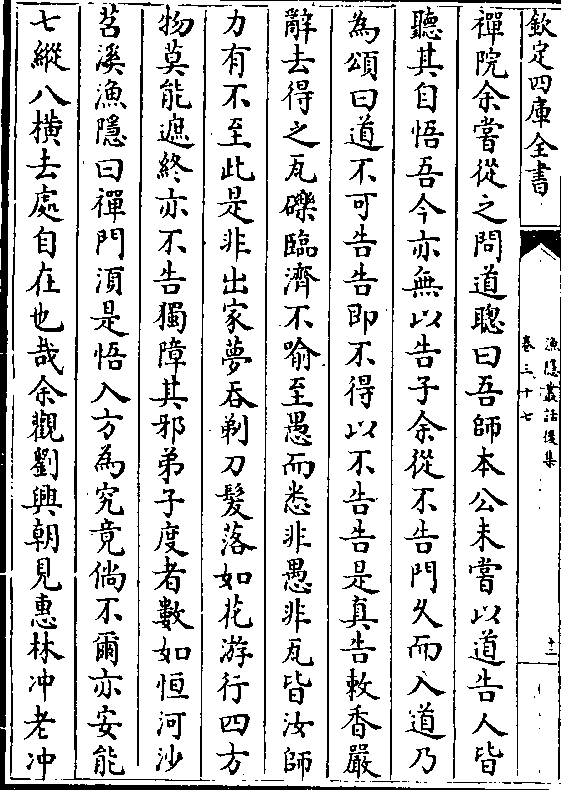 欽定四庫全書
漁隱叢話後集
卷三十七
十三
禪院余嘗從之問道聰曰吾師本公未嘗以道告人皆
聽其自悟吾今亦無以告子余從不告門久而入道乃
為頌曰道不可告告即不得以不告告是真告敕香嚴
辭去得之瓦礫臨濟不喻至愚而悉非愚非瓦皆汝師
力有不至此是非出家夢吞剃刀髮落如花游行四方
物莫能遮終亦不告獨障其邪弟子度者數如恒河沙
苕溪漁隱曰禪門湏是悟入方為究竟倘不爾亦安能
七縱八橫去處自在也哉余觀劉興朝見惠林冲老冲